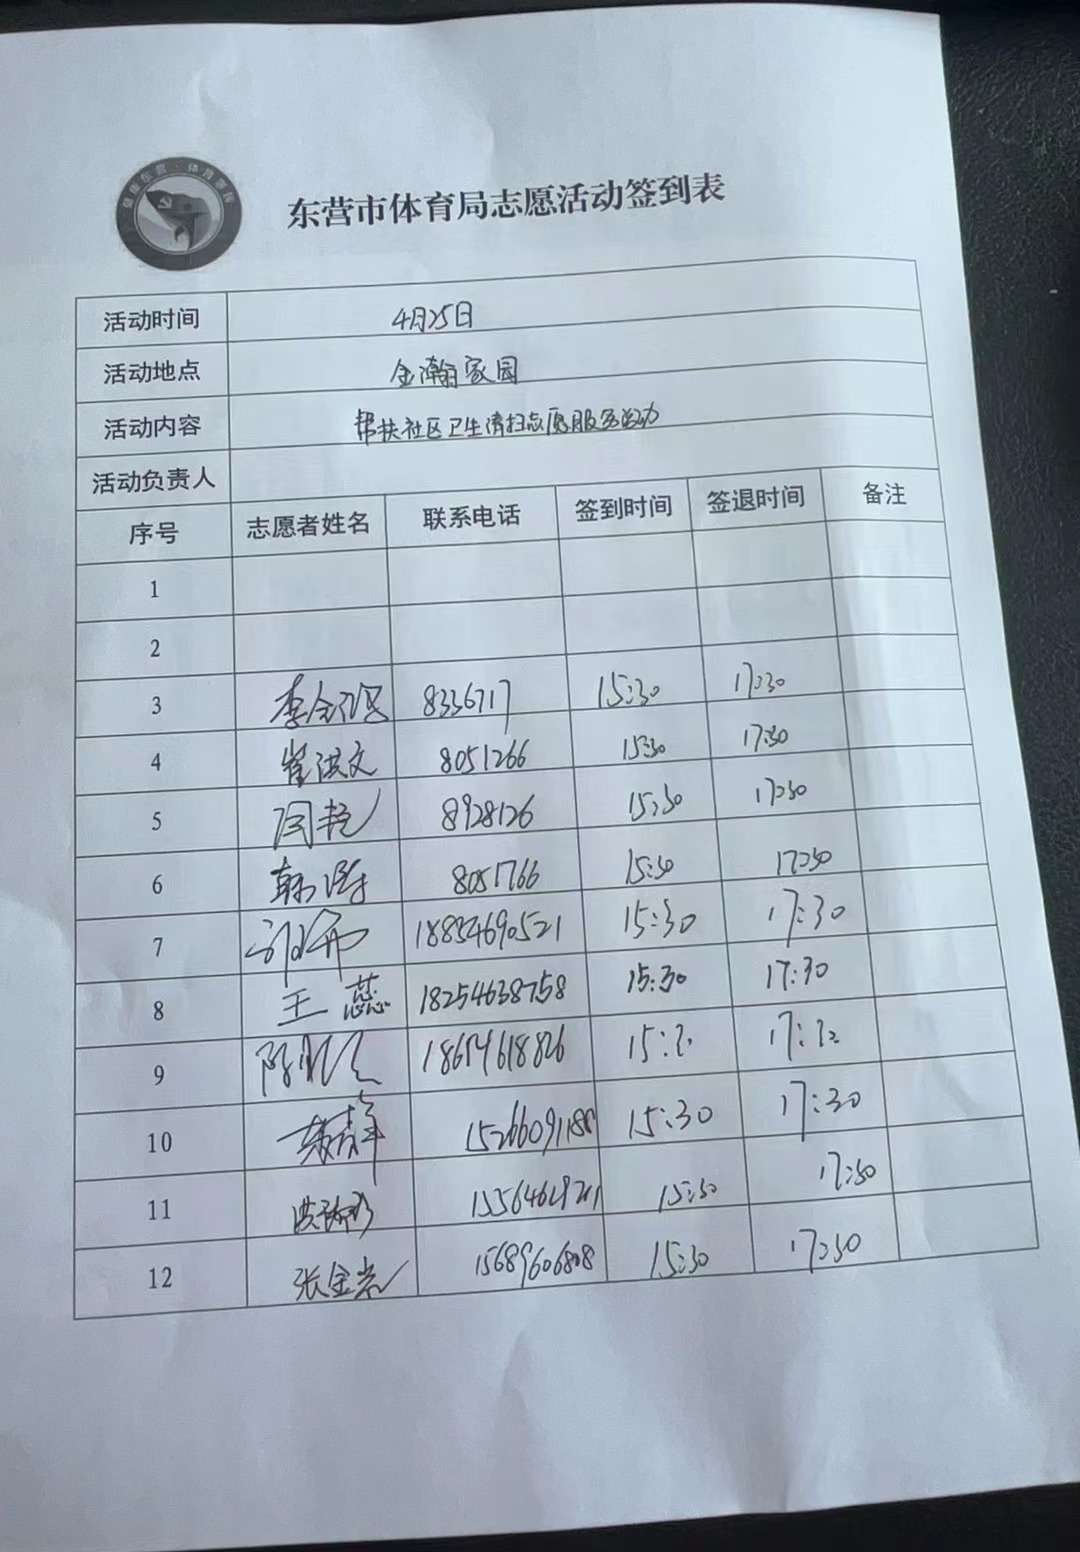 健康东营·体育惠民
东营市体育局志愿活动签到表
活动时间 4月25日
活动地点 金瀚家园
活动内容 帮扶社区卫生清扫志愿服务活动
活动负责人
序号 志愿者姓名 联系电话 签到时间 签退时间 备注
1
2
3 8336717 15:30 17:30
4 崔洪文 8051266 15:30 17:30
5 闫艳 8928126 15:30 17:30
6 韩涛 8051766 15:30 17:30
7 18854690521 15:30 17:30
8 王蕊 18254638758 15:30 17:30
9 18654618826
10 15:30 17:30
11 15:30 17:30
12 张金光 15689606808 15:30 17:30